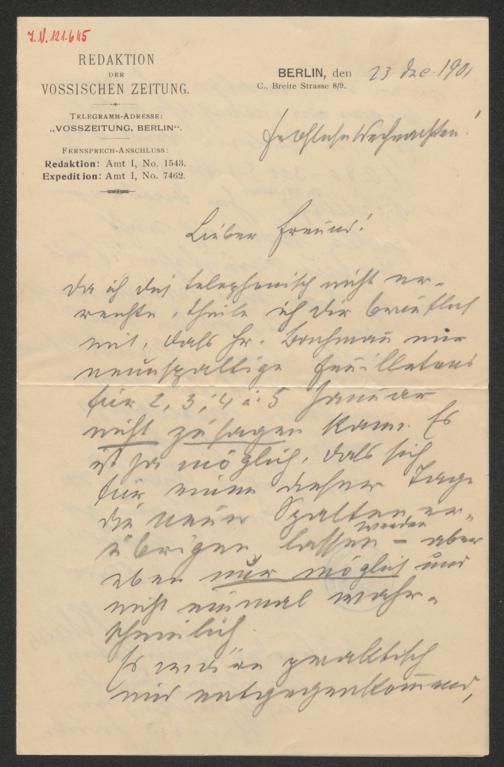 J.N. 121.645
REDAKTION
DER
VOSSISCHEN ZEITUNG.
TELEGRAMM-ADRESSE:
„VOSSZEITUNG, BERLIN“.
FERNSPRECH-ANSCHLUSS:
Redaktion: Amt I, No. 1543.
Expedition: Amt I, No. 7462.
BERLIN, den 23 Dec. 1901
C., Breite Strasse 8/9.
Weihnachten!
Lieber Freund!
Da ich dich telephonisch nicht er-
reichte, theile ich dir brieflich
mit, dass Hr. Bachmann mir
neunspaltige Feuilletons
für 2, 3, 4 u. 5 Januar
nicht zusagen kann. Es
ist ja möglich, dass sich
für einen dieser Tage
die neun Spalten er-
übrigen lassen werden – aber
eben nur möglich und
nicht einmal wahr-
scheinlich.
Es wäre praktisch
und entgegenkommend,